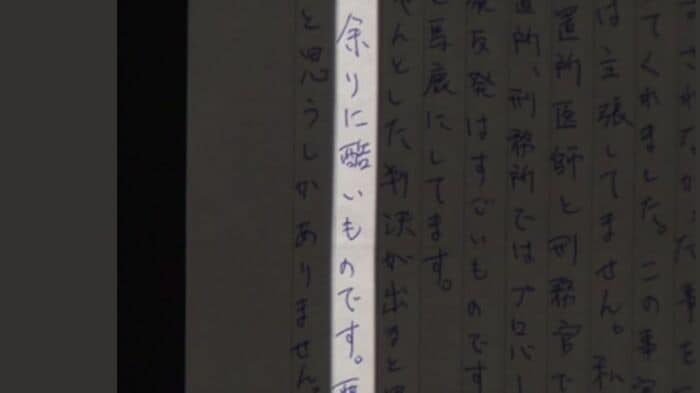 てくれました。この事実
は主張してません。私
置所医師と刑務官で
置所、刑務所ではプロパー
反発はすごいものです
と馬鹿にしてます。
ゃんとした判決が出ると思
余りに酷いものです。
と思うしかありません。